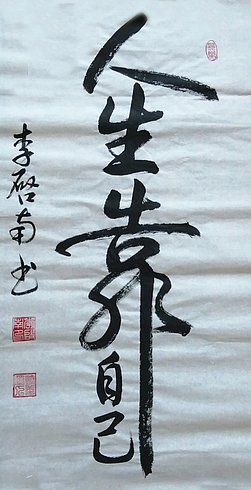 人生靠自己
李啓南书